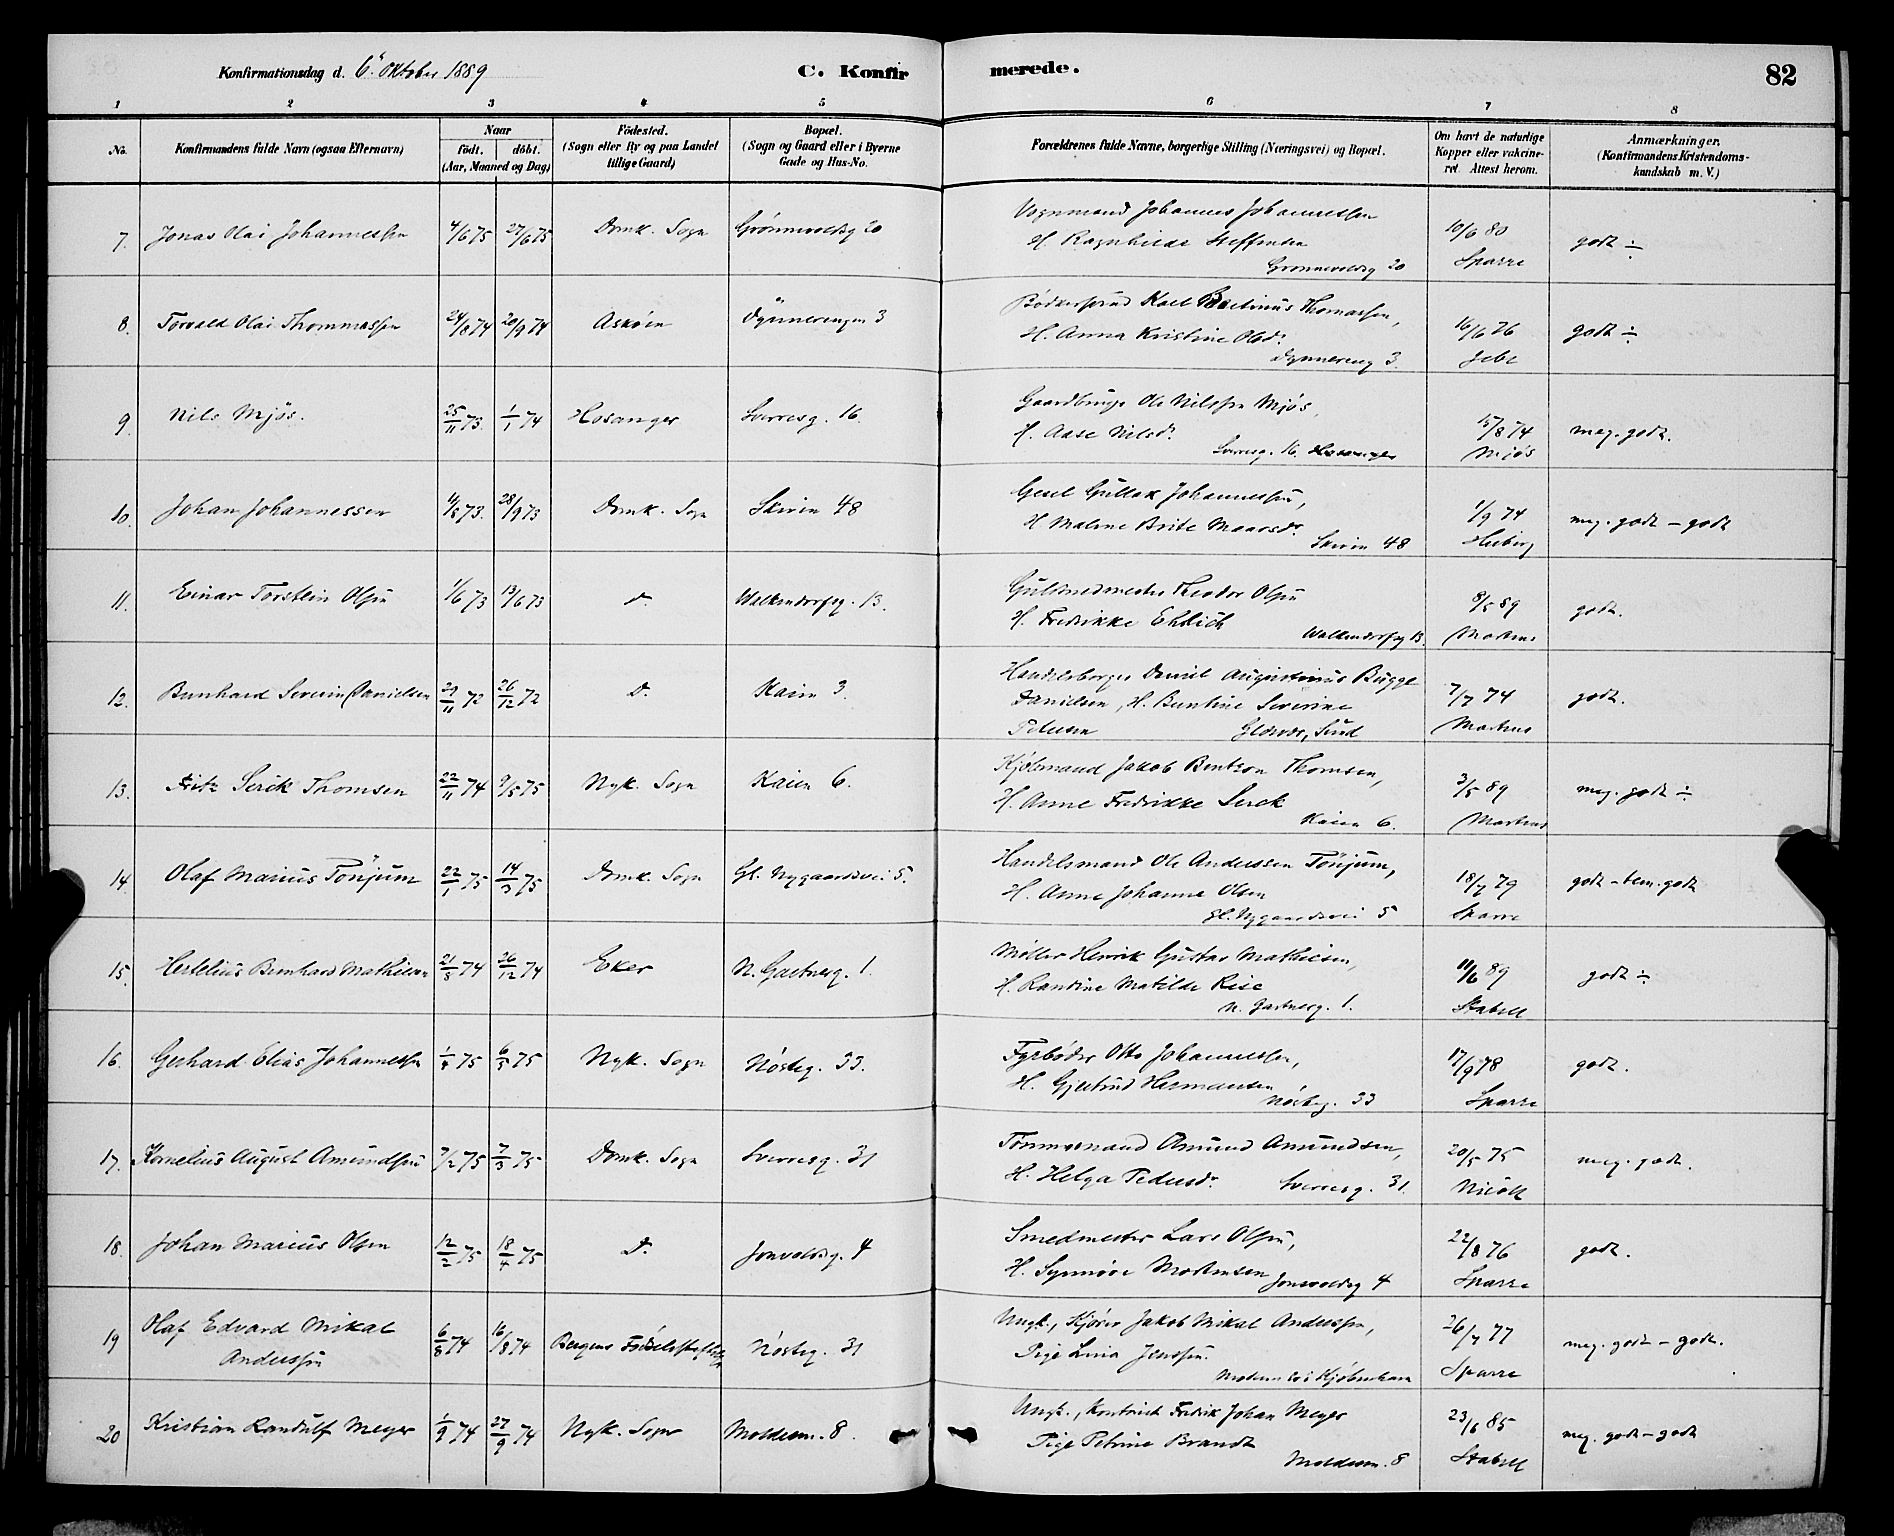 Konfirmationsdag d. 6. Oktober 1889
C. Konfirmerede.
82
1 2 3 4 5 6 7 8
No.
Konfirmandens fulde Navn (ogsaa Efternavn)
Naar
födt. döbt.
(Aar, Maaned og Dag)
Födested.
(Sogn eller By og paa Landet
tillige Gaard)
Bopæl.
(Sogn og Gaard eller i Byerne
Gade og Hus-No.
Forældrenes fulde Navne, borgerlige Stilling (Næringsvei) og Bopæl.
Om havt de naturlige
Kopper eller vakcine-
ret. Attest herom.
Anmærkninger.
(Konfirmandens Kristendoms-
kundskab m. V.)
7. Jonas Olai Johannessen 4/6 75 27/6 75 Domk. Sogn Grönnevoldsg 20
Vognmand Johannes Johannessen
H. Ragnhilde Steffensen
Grönnevoldsg 20
10/6 80
Sparre
godt ÷
8. Torvald Olai Thommassen 24/8 74 20/9 74 Asköen Dynnerengen 3
Bödkersvend Karl Thomassen,
H. Anna Kristine Olsd.
Dynnereng 3.
16/6 76
Jebe
godt ÷
9. Nils Mjös. 25/11 73. 1/1 74 Hosanger Sverresg. 16.
Gaardbruger Ole Nilssen Mjös,
H. Aase Nilsd.
Sverresg. 16. Hosanger
15/8 74
Mjös
meg. godt.
10. Johan Johannessen 11/8 73. 28/9 73 Domk. Sogn Skiven 48
Gesel Gullak Johannessen,
H Malene Brite Monsdr.
Skiven 48
1/9 74
Heiberg
meg. godt - godt
11. Einar Torstein Olsen 1/6 73 13/6 73 D. Walkendorfsg. 13.
Guldsmedmester Theodor Olsen
H. Fredrikke Ehlich
Walkendorfsg 13.
8/5 89
Martens
godt.
12. Bernhard Severin Danielsen 29/11 72 26/12 72 D. Kaien 3.
Handelsborger Daniel Augustinus Bugge
Danielsen, H. Berntine Severine
Petersen Glesvær, Sund
7/7 74
Martens
godt.
13. Fritz Serck Thomsen 22/11 74 9/5 75 Nyk. Sogn Kaien 6.
Kjöbmand Jakob Bentzon Thomsen,
H. Anne Fredrikke Serck
Kaien 6.
3/5 89
Martens
meg. godt ÷
14 Olaf Marius Tönjum 22/1 75 14/3 75 Domk. Sogn Gl. Nygaardsvei 5.
Handelsmand Ole Anderssen Tönjum,
H. Anne Johanne Olsen
Gl. Nygaardsvei 5
18/7 79
Sparre
godt - tem. godt
15. Hertelius Bernhard Mathiesen 21/3 74 26/12 74 Eker N. Gartnerg. 1.
Möller Henrik Gustav Mathiesen,
H. Randine Matilde Rise
N. Gartnerg. 1.
11/6 89
Stabell
godt ÷
16. Gerhard Elias Johannessen 1/4 75 6/5 75 Nyk. Sogn Nösteg. 33.
Fyrböder Otto Johannessen,
H. Gjertrud Hermansen
Nösteg. 33
17/9 78
Sparre
godt.
17. Kornelius August Amundsen 7/2 75 7/3 75 Domk. Sogn Sverresg. 31
Tömmermand Amund Amundsen,
H. Helga Pedersdr. Sverresg. 31.
20/5 75
Nicoll
meg. godt.
18. Johan Marius Olsen 12/2 75 18/4 75 D. Jonsvoldsg. 4
Smedmester Lars Olsen,
H. Synnöve Mortensen Jonsvoldsg 4
22/8 76
Sparre
godt.
19 Olaf Edvard Mikal
Anderssen 6/8 74 16/8 74 Bergens Födselsstiftelse Nösteg. 31
Ungk., Kjörer Jakob Mikal Anderssen,
Pige Lina Jenssen.
Moderen bor i Kjöbenhavn
26/7 77
Sparre
meg. godt - godt.
20 Kristian Randulf Meyer 1/9 74 27/9 74 Nyk. Sogn Moldem. 8.
Ungk., Kontorist Fredrik Johan Meyer
Pige Petrine Brandt
Moldem. 8
23/6 85
Stabell
meg. godt - godt